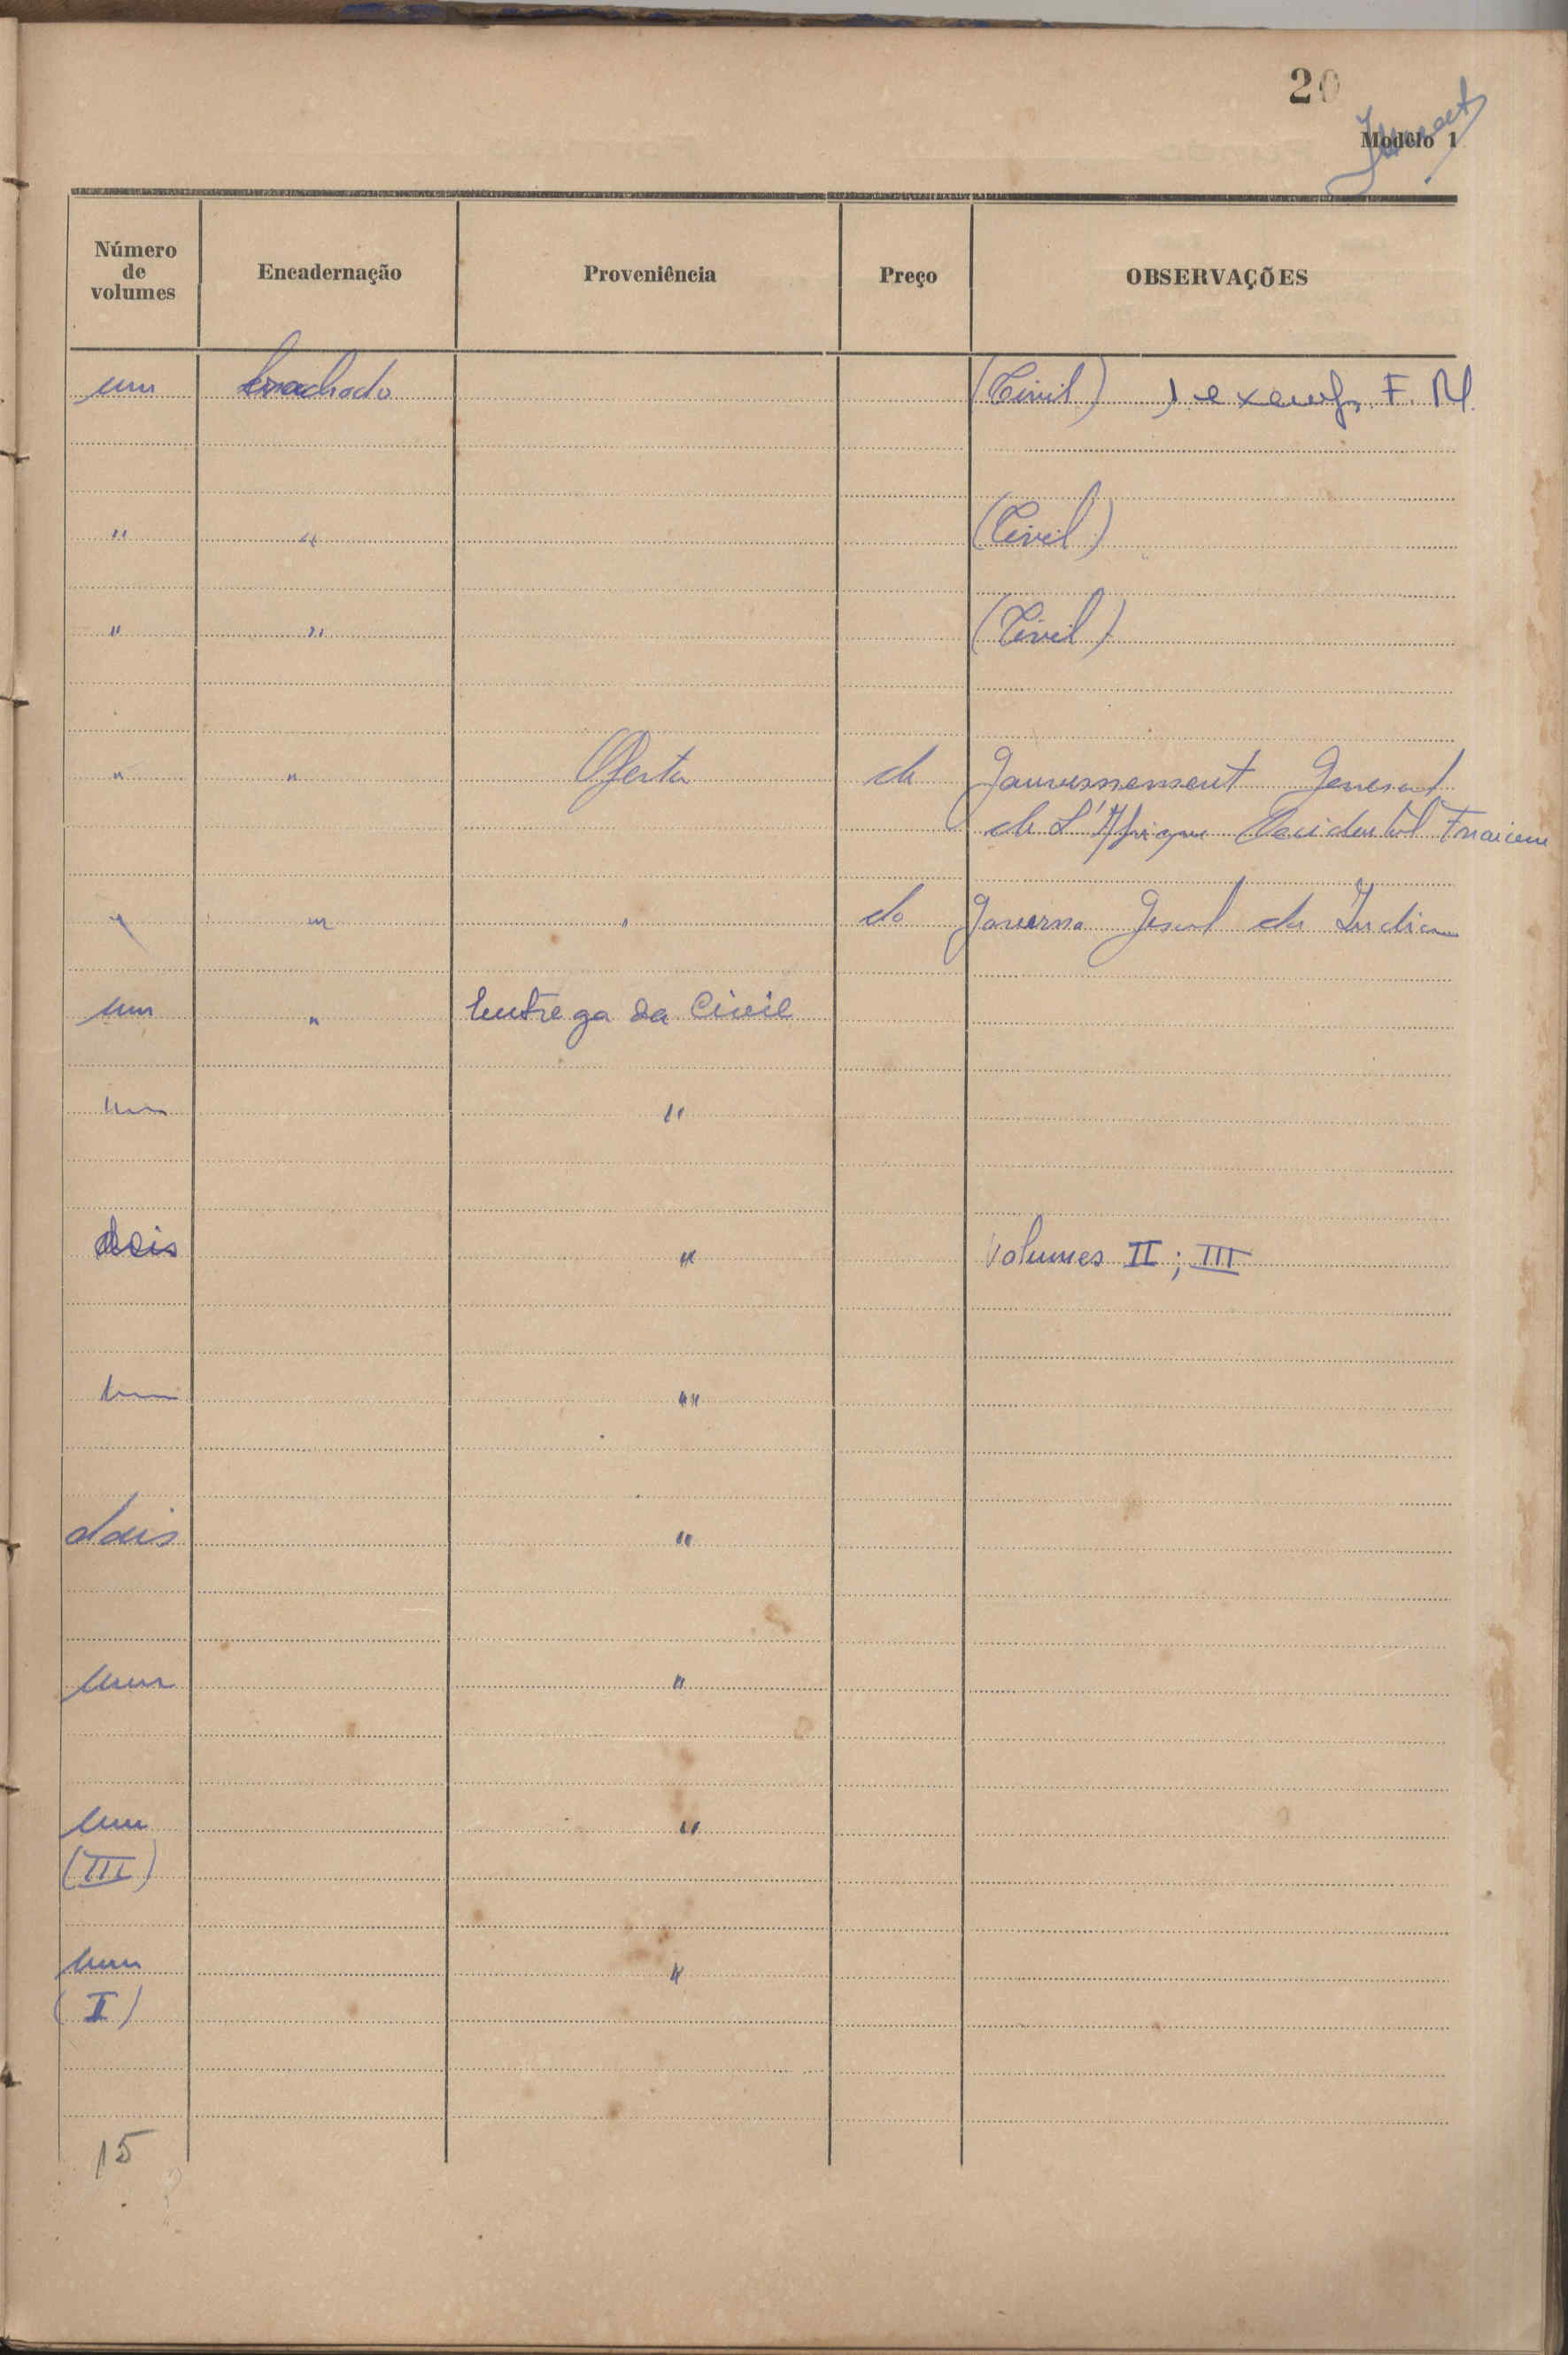 20
Modêlo 1
Número de volumes Encadernação Proveniência Preço OBSERVAÇÕES
um brochado (Civil) 1 exemp. F. M.
" " (Civil)
" " (Civil)
" " Oferta de Gouvernement General
de L'Afrique Occidental Francaise
" " " do Governo Geral da India
um " Entrega da Civil
um "
dois " Volumes II; III
um "
dois "
um "
um "
(III)
um "
(I)
15